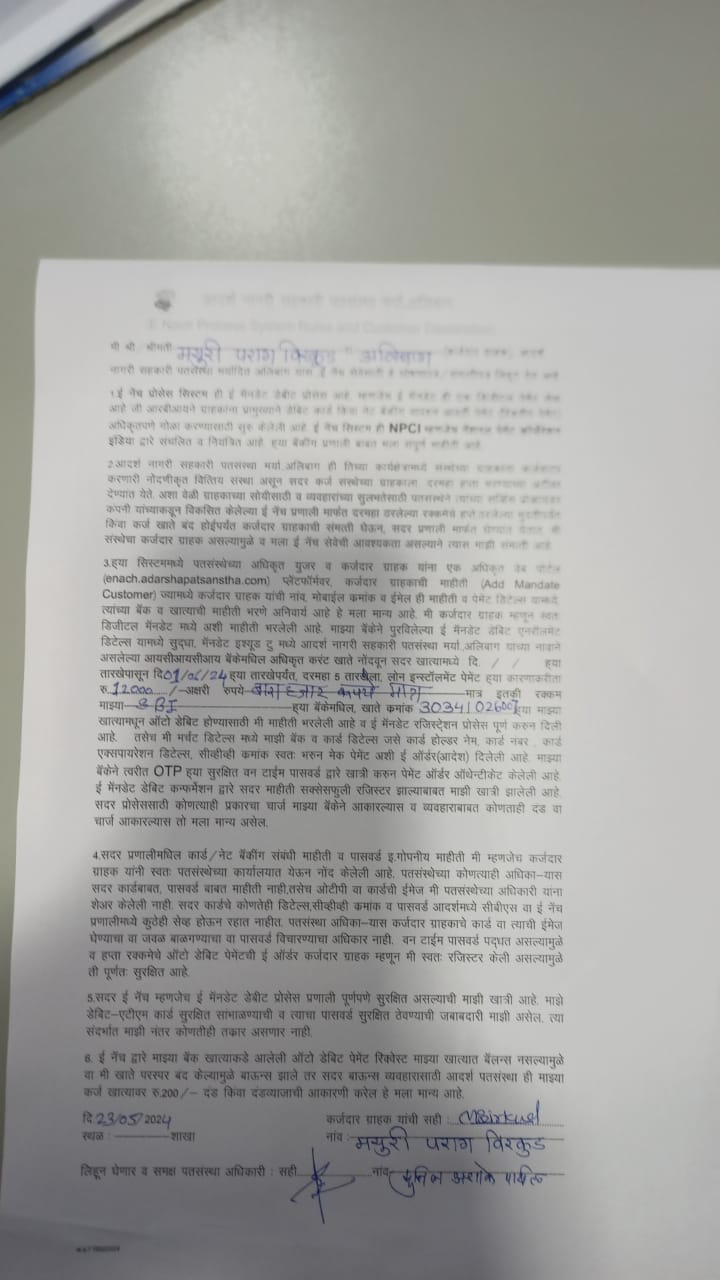 आदर्श नागरी सहकारी पतसंस्था मर्या.अलिबाग
E Nach Process System Rules and Customer Declaration
मी श्री/श्रीमती मयूरी पराग विरकुड अलिबाग (कर्जदार ग्राहक), आदर्श
नागरी सहकारी पतसंस्था मर्यादित अलिबाग यास ई नॅच सेवेसाठी हे लिहून देत आहे
1.ई नॅच प्रोसेस सिस्टम ही ई मॅनडेट डेबीट प्रोसेस आहे. म्हणजेच ई मॅनडेट ही एक
आहे जी आरबीआयने ग्राहकांना प्रामुख्याने डेबिट कार्ड किंवा नेट बँकींग
अधिकृतपणे गोळा करण्यासाठी सुरु केलेली आहे. ई नॅच सिस्टम ही NPCI म्हणजेच नॅशनल पेमेंट कॉर्पोरेशन
इंडिया द्वारे संचलित व नियंत्रित आहे. ह्या बँकींग प्रणाली बाबत मला संपूर्ण माहीती आहे.
2.आदर्श नागरी सहकारी पतसंस्था मर्या.अलिबाग ही तिच्या कार्यक्षेत्रामध्ये संस्थेच्या ग्राहकांना कर्जपुरवठा
करणारी नोंदणीकृत वित्तिय संस्था असून सदर कर्ज संस्थेच्या ग्राहकाला दरमहा हप्ता
देण्यात येते. अशा वेळी ग्राहकाच्या सोयीसाठी व व्यवहारांच्या सुलभतेसाठी पतसंस्थेने त्यांच्या सर्व्हिस प्रोव्हायडर
कंपनी यांच्याकडून विकसित केलेल्या ई नॅच प्रणाली मार्फत दरमहा ठरलेल्या रक्कमेचे हप्ते ठरलेल्या मुदतीपर्यंत
किंवा कर्ज खाते बंद होईपर्यंत कर्जदार ग्राहकाची संमत्ती घेऊन, सदर प्रणाली मार्फत घेण्यात येतात. मी
संस्थेचा कर्जदार ग्राहक असल्यामुळे व मला ई नॅच सेवेची आवश्यकता असल्याने त्यास माझी संमती आहे.
3.ह्या सिस्टममध्ये पतसंस्थेच्या अधिकृत युजर व कर्जदार ग्राहक यांना एक अधिकृत वेब पोर्टल
(enach.adarshapatsanstha.com) प्लॅटफॉर्मवर, कर्जदार ग्राहकाची माहीती (Add Mandate
Customer) ज्यामध्ये कर्जदार ग्राहक यांची नांव, मोबाईल कमांक व ईमेल ही माहीती व पेमेंट डिटेल्स यामध्ये
त्यांच्या बँक व खात्याची माहीती भरणे अनिवार्य आहे हे मला मान्य आहे. मी कर्जदार ग्राहक म्हणून स्वतः
डिजीटल मॅनडेट मध्ये अशी माहीती भरलेली आहे. माझ्या बँकेने पुरविलेल्या ई मॅनडेट डेबिट एनरोलमेंट
डिटेल्स यामध्ये सुद्धा, मॅनडेट इश्यूड टु मध्ये आदर्श नागरी सहकारी पतसंस्था मर्या.अलिबाग यांच्या नावाने
असलेल्या आयसीआयसीआय बँकेमधिल अधिकृत करंट खाते नोंदवून सदर खात्यामध्ये दि. / / ह्या
तारखेपासून दि.01/06/24 ह्या तारखेपर्यंत, दरमहा 5 तारखेला, लोन इन्स्टॉलमेंट पेमेंट ह्या कारणाकरीता
रु.12000 /-अक्षरी रुपये बारा हजार रूपये मात्र मात्र इतकी रक्कम
माझ्या SBI ह्या बँकेमधिल, खाते कमांक ह्या माझ्या
खात्यामधून ऑटो डेबिट होण्यासाठी मी माहीती भरलेली आहे व ई मॅनडेट रजिस्ट्रेशन प्रोसेस पूर्ण करुन दिली
आहे. तसेच मी मर्चंट डिटेल्स मध्ये माझी बँक व कार्ड डिटेल्स जसे कार्ड होल्डर नेम, कार्ड नंबर , कार्ड
एक्सपायरेशन डिटेल्स, सीव्हीव्ही कमांक स्वतः भरुन मेक पेमेंट अशी ई ऑर्डर(आदेश) दिलेली आहे. माझ्या
बँकेने त्वरीत OTP ह्या सुरक्षित वन टाईम पासवर्ड द्वारे खात्री करुन पेमेंट ऑर्डर ऑथेन्टीकेट केलेली आहे.
ई मॅनडेट डेबिट कन्फर्मेशन द्वारे सदर माहीती सक्सेसफुली रजिस्टर झाल्याबाबत माझी खात्री झालेली आहे.
सदर प्रोसेससाठी कोणत्याही प्रकारचा चार्ज माझ्या बँकेने आकारल्यास व व्यवहाराबाबत कोणताही दंड वा
चार्ज आकारल्यास तो मला मान्य असेल.
4.सदर प्रणालीमधिल कार्ड/नेट बँकींग संबंधी माहीती व पासवर्ड इ.गोपनीय माहीती मी म्हणजेच कर्जदार
ग्राहक यांनी स्वतः पतसंस्थेच्या कार्यालयात येऊन नोंद केलेली आहे. पतसंस्थेच्या कोणत्याही अधिका-यास
सदर कार्डबाबत, पासवर्ड बाबत माहीती नाही,तसेच ओटीपी वा कार्डची ईमेज मी पतसंस्थेच्या अधिकारी यांना
शेअर केलेली नाही. सदर कार्डचे कोणतेही डिटेल्स,सीव्हीव्ही कमांक व पासवर्ड आदर्शमध्ये सीबीएस वा ई नॅच
प्रणालीमध्ये कुठेही सेव्ह होऊन रहात नाहीत. पतसंस्था अधिका-यास कर्जदार ग्राहकाचे कार्ड वा त्याची ईमेज
घेण्याचा वा जवळ बाळगण्याचा वा पासवर्ड विचारण्याचा अधिकार नाही. वन टाईम पासवर्ड पद्धत असल्यामुळे
व हप्ता रक्कमेचे ऑटो डेबिट पेमेंटची ई ऑर्डर कर्जदार ग्राहक म्हणून मी स्वतः रजिस्टर केली असल्यामुळे
ती पूर्णतः सुरक्षित आहे.
5.सदर ई नॅच म्हणजेच ई मॅनडेट डेबीट प्रोसेस प्रणाली पूर्णपणे सुरक्षित असल्याची माझी खात्री आहे. माझे
डेबिट-एटीएम कार्ड सुरक्षित सांभाळण्याची व त्याचा पासवर्ड सुरक्षित ठेवण्याची जबाबदारी माझी असेल. त्या
संदर्भात माझी नंतर कोणतीही तकार असणार नाही.
6. ई नॅच द्वारे माझ्या बँक खात्याकडे आलेली ऑटो डेबिट पेमेंट रिक्वेस्ट माझ्या खात्यात बॅलन्स नसल्यामुळे
वा मी खाते परस्पर बंद केल्यामुळे बाऊन्स झाले तर सदर बाऊन्स व्यवहारासाठी आदर्श पतसंस्था ही माझ्या
कर्ज खात्यावर रु.200/- दंड किंवा दंडव्याजाची आकारणी करेल हे मला मान्य आहे.
दि.23/05/2024 कर्जदार ग्राहक यांची सही :
स्थळ : शाखा नांव : मयुरी पराग विरकुड
लिहून घेणार व समक्ष पतसंस्था अधिकारी : सही नांव सुनिल अशोक पाटील